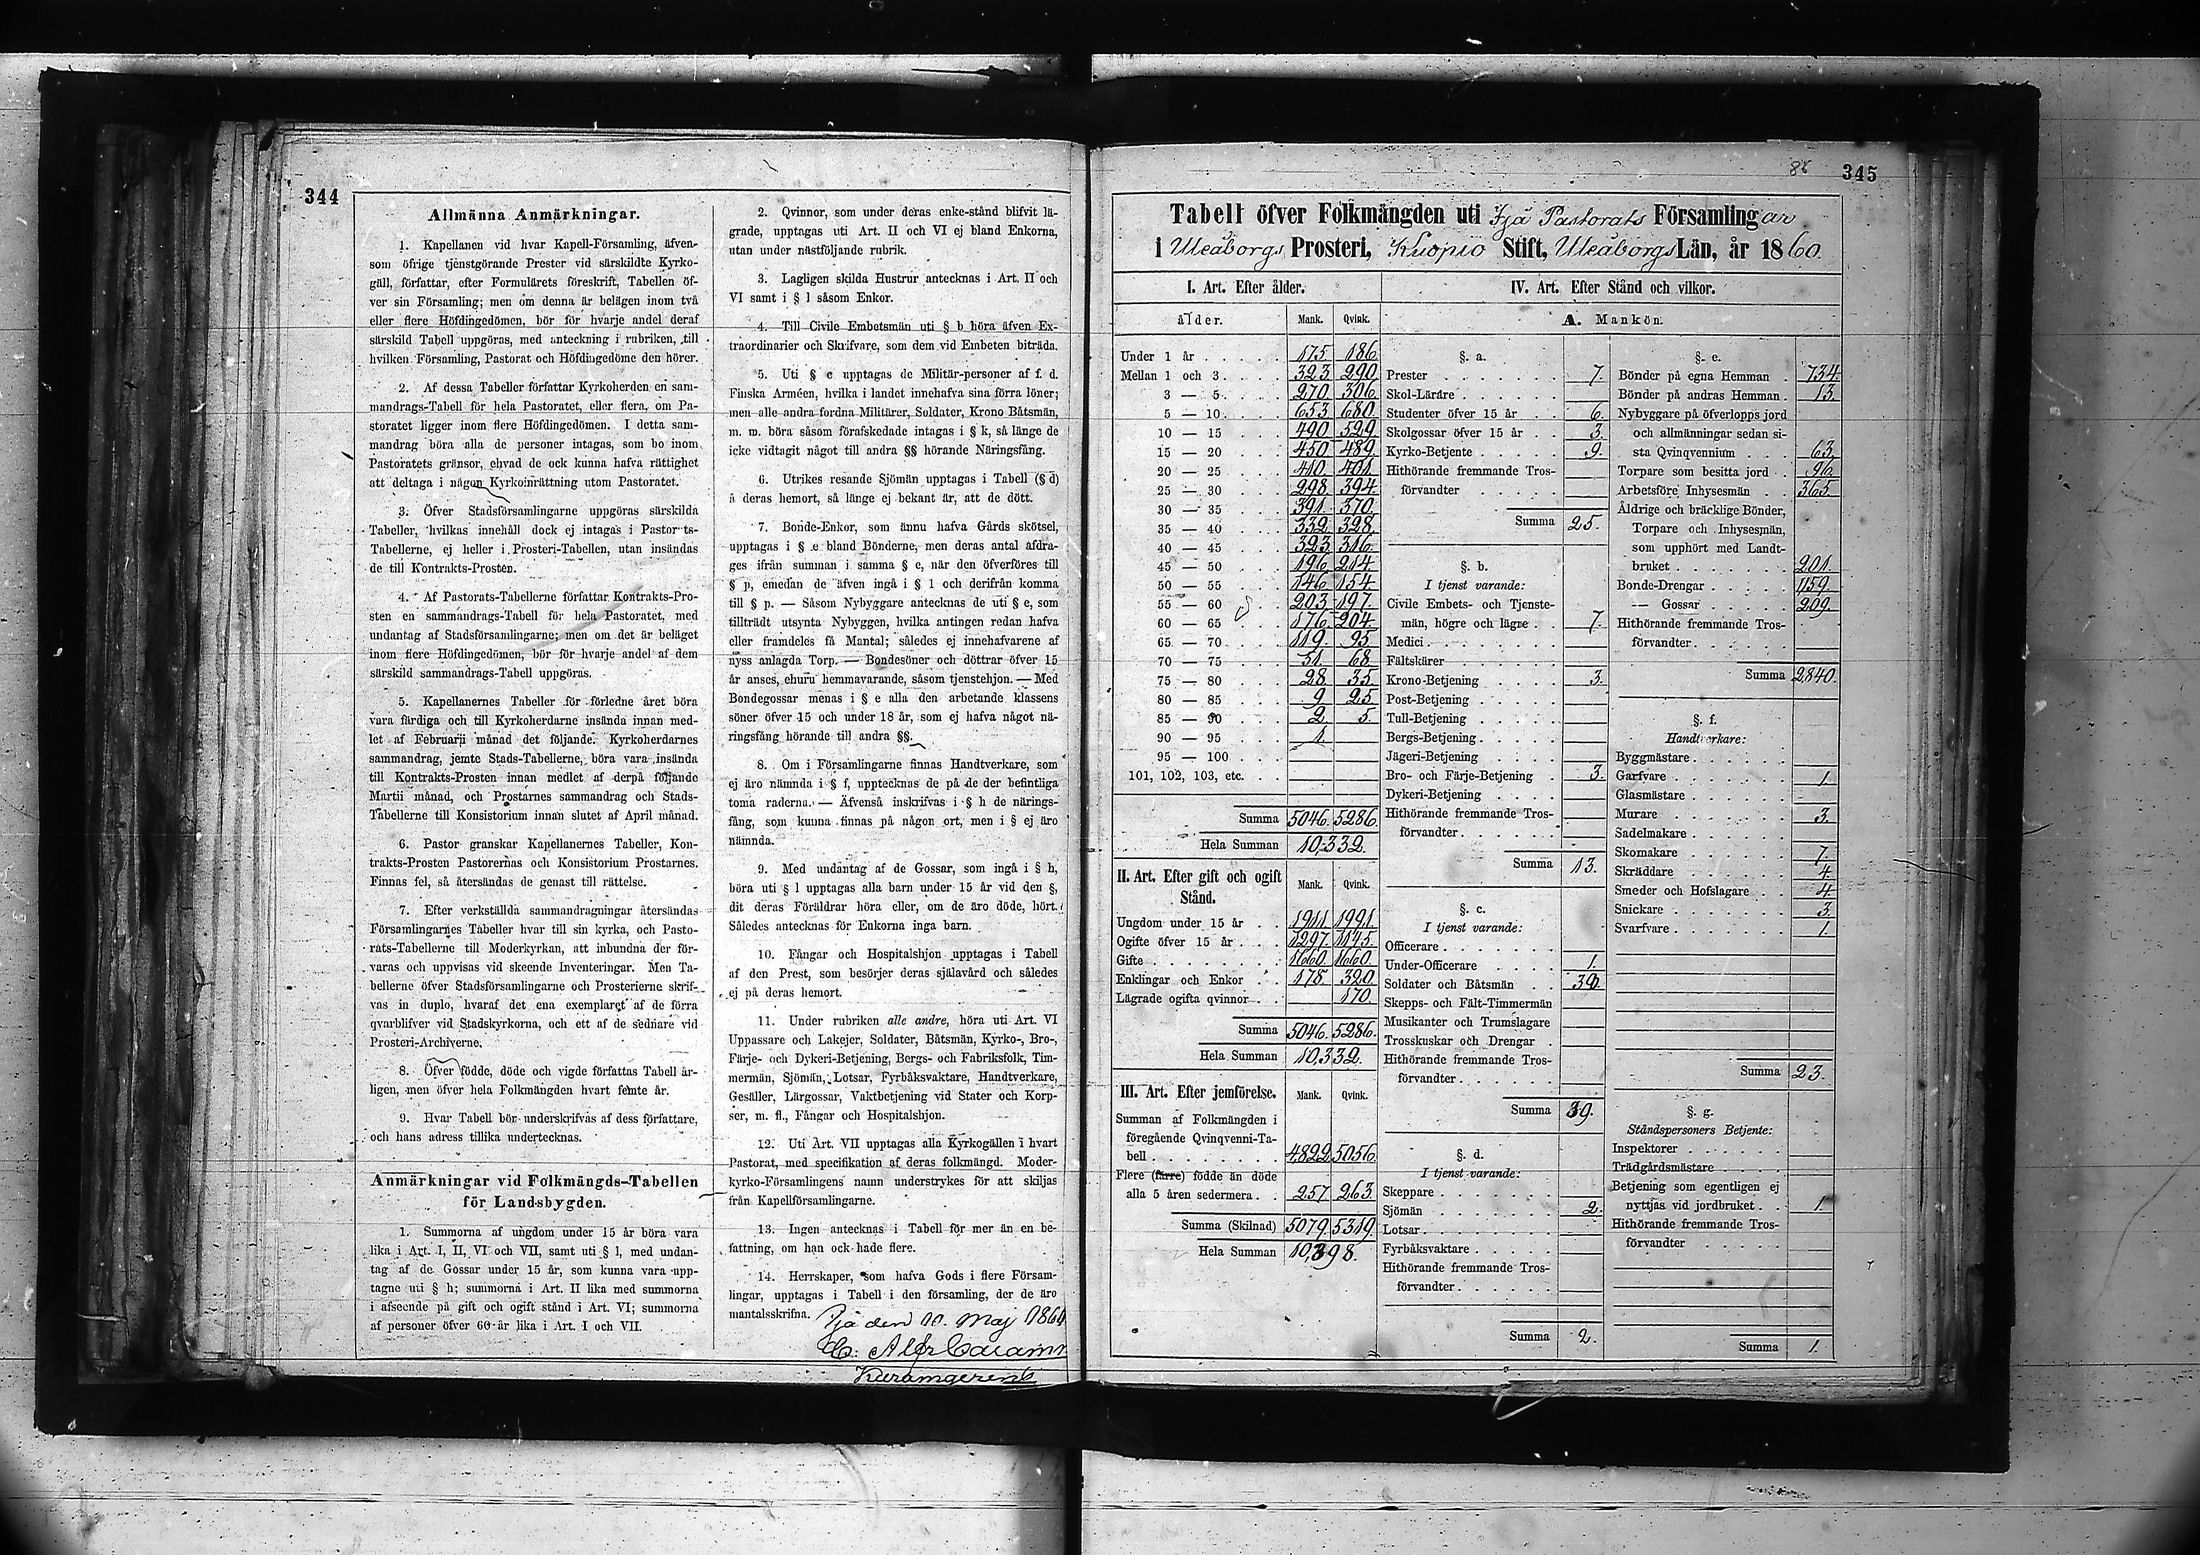 344
Allmänna Anmärkningar.
1. Kapellanen vid hvar Kapell-Församling, äfven-
som öfrige tjenstgörande Prester vid särskildte Kyrko-
gäll, författar, efter Formulärets föreskrift, Tabellen öf-
ver sin Församling; men om denna är belägen inom två
eller flere Höfdingedömen, bör för hvarje andel deraf
särskild Tabell uppgöras, med anteckning i rubriken, till
hvilken Församling, Pastorat och Höfdingedöme den hörer.
2. Af dessa Tabeller författar Kyrkoherden en sam-
mandrags-Tabell för hela Pastoratet, eller flera, om Pa-
storatet ligger inom flere Höfdingedömen. I detta sam-
mandrag böra alla de personer intagas, som bo inom
Pastoratets gränsor, ehvad de ock kunna hafva rättighet
att deltaga i någon Kyrkoinrättning utom Pastoratet.
3. Öfver Stadsförsamlingarne uppgöras särskilda
Tabeller, hvilkas innehåll dock ej intagas i Pastorats-
Tabellerne, ej heller i Prosteri-Tabellen, utan insändas
de till Kontrakts-Prosten.
4. Af Pastorats-Tabellerne författar Kontrakts-Pro-
sten en sammandrags-Tabell för hela Pastoratet, med
undantag af Stadsförsamlingarne; men om det är beläget
inom flere Höfdingedömen, bör för hvarje andel af dem
särskild sammandrags-Tabell uppgöras.
5. Kapellanernes Tabeller för förledne året böra
vara färdiga och till Kyrkoherdarne insända innan med-
let af Februarii månad det följande. Kyrkoherdarnes
sammandrag, jemte Stads-Tabellerne, böra vara insända
till Kontrakts-Prosten innan medlet af derpå följande
Martii månad, och Prostarnes sammandrag och Stads-
Tabellerne till Konsistorium innan slutet af April månad.
6. Pastor granskar Kapellanernes Tabeller, Kon-
trakts-Prosten Pastorernas och Konsistorium Prostarnes.
Finnas fel, så återsändas de genast till rättelse.
7. Efter verkställda sammandragningar återsändas
Församlingarnes Tabeller hvar till sin kyrka, och Pasto-
rats-Tabellerne till Moderkyrkan, att inbundna der för-
varas och uppvisas vid skeende Inventeringar. Men Ta-
bellerne öfver Stadsförsamlingarne och Prosterierne skrif-
vas in duplo, hvaraf det ena exemplaret af de förra
qvarblifver vid Stadskyrkorna, och ett af de sednare vid
Prosteri-Archiverne.
8. Öfver födde, döde och vigde författas Tabell år-
ligen, men öfver hela Folkmängden hvart femte år.
9. Hvar Tabell bör underskrifvas af dess författare,
och hans adress tillika undertecknas.
Anmärkningar vid Folkmängds-Tabellen
för Landsbygden.
1. Summorna af ungdom under 15 år böra vara
lika i Art. I, II, VI och VII, samt uti § l, med undan-
tag af de Gossar under 15 år, som kunna vara upp-
tagne uti § h; summorna i Art. II lika med summorna
i afseende på gift och ogift stånd i Art. VI; summorna
af personer öfver 60 år lika i Art. I och VII.
2. Qvinnor, som under deras enke-stånd blifvit lä-
grade, upptagas uti Art. II och VI ej bland Enkorna,
utan under nästföljande rubrik.
3. Lagligen skilda Hustrur antecknas i Art. II och
VI samt i § l såsom Enkor.
4. Till Civile Embetsmän uti § b höra äfven Ex-
traordinarier och Skrifvare, som dem vid Embeten biträda.
5. Uti § c upptagas de Militär-personer af f. d.
Finska Arméen, hvilka i landet innehafva sina förra löner;
men alle andra fordna Militärer, Soldater, Krono Båtsmän,
m. m. böra såsom förafskedade intagas i § k, så länge de
icke vidtagit något till andra §§ hörande Näringsfång.
6. Utrikes resande Sjömän upptagas i Tabell (§ d)
å deras hemort, så länge ej bekant är, att de dött.
7. Bonde-Enkor, som ännu hafva Gårds skötsel,
upptagas i § e bland Bönderne, men deras antal afdra-
ges ifrån summan i samma § e, när den öfverföres till
§ p, emedan de äfven ingå i § l och derifrån komma
till § p. — Såsom Nybyggare antecknas de uti § e, som
tillträdt utsynta Nybyggen, hvilka antingen redan hafva
eller framdeles få Mantal; således ej innehafvarene af
nyss anlagda Torp. — Bondesöner och döttrar öfver 15
år anses, ehuru hemmavarande, såsom tjenstehjon. — Med
Bondegossar menas i § e alla den arbetande klassens
söner öfver 15 och under 18 år, som ej hafva något nä-
ringsfång hörande till andra §§.
8. Om i Församlingarne finnas Handtverkare, som
ej äro nämnda i § f, upptecknas de på de der befintliga
toma raderna. — Äfvenså inskrifvas i § h de närings-
fång, som kunna finnas på någon ort, men i § ej äro
nämnda.
9. Med undantag af de Gossar, som ingå i § h,
böra uti § l upptagas alla barn under 15 år vid den §,
dit deras Föräldrar höra eller, om de äro döde, hört.
Således antecknas för Enkorna inga barn.
10. Fångar och Hospitalshjon upptagas i Tabell
af den Prest, som besörjer deras själavård och således
ej på deras hemort.
11. Under rubriken alle andre, höra uti Art. VI
Uppassare och Lakejer, Soldater, Båtsmän, Kyrko-, Bro-,
Färje- och Dykeri-Betjening, Bergs- och Fabriksfolk, Tim-
mermän, Sjömän, Lotsar, Fyrbåksvaktare, Handtverkare,
Gesäller, Lärgossar, Vaktbetjening vid Stater och Korp-
ser, m. fl., Fångar och Hospitalshjon.
12. Uti Art. VII upptagas alla Kyrkogällen i hvart
Pastorat, med specifikation af deras folkmängd. Moder-
kyrko-Församlingens namn understrykes för att skiljas
från Kapellförsamlingarne.
13. Ingen antecknas i Tabell för mer än en be-
fattning, om han ock hade flere.
14. Herrskaper, som hafva Gods i flere Försam-
lingar, upptagas i Tabell i den församling, der de äro
mantalsskrifna.
Ijå den 10. Maj 1861
345
Tabell öfver Folkmängden uti Ijå Pastorats Församlingar
i Uleåborgs Prosteri, Kuopio Stift, Uleåborgs Län, år 1860.
I. Art. Efter ålder.
ålder. Mank. Qvink.
Under 1 år 175 186
Mellan 1 och 3 323 290
3 — 5 270 306
5 — 10 653 680
10 — 15 490 529
15 — 20 450 489
20 — 25 410 401
25 — 30 298 394
30 — 35 391 370
35 — 40 332 328
40 — 45 323 316
45 — 50 196 214
50 — 55 146 154
55 — 60 203 197
60 — 65 176 204
65 — 70 119 95
70 — 75 51 68
75 — 80 28 35
80 — 85 9 25
85 — 90 2 5
90 — 95 1
95 — 100
101, 102, 103, etc.
Summa 5046. 5286.
Hela Summan 10,332.
II. Art. Efter gift och ogift
Stånd. Mank. Qvink.
Ungdom under 15 år 1911 1991
Ogifte öfver 15 år 1297 1145
Gifte 1660 1660
Enklingar och Enkor 178 320
Lägrade ogifta qvinnor 170
Summa 5046. 5286.
Hela Summan 10,332.
III. Art. Efter jemförelse. Mank. Qvink.
Summan af Folkmängden i
föregående Qvinqvenni-Ta-
bell 4822 5056
Flere (färre) födde än döde
alla 5 åren sedermera 257 263
Summa (Skilnad) 5079. 5319.
Hela Summan 10,398.
IV. Art. Efter Stånd och vilkor.
A. Mankön.
§. a.
Prester 7.
Skol-Lärare
Studenter öfver 15 år 6.
Skolgossar öfver 15 år 3.
Kyrko-Betjente 9.
Hithörande fremmande Tros-
förvandter
Summa 25.
§. b.
I tjenst varande:
Civile Embets- och Tjenste-
män, högre och lägre 7.
Medici
Fältskärer
Krono-Betjening 3.
Post-Betjening
Tull-Betjening
Bergs-Betjening
Jägeri-Betjening
Bro- och Färje-Betjening 3.
Dykeri-Betjening
Hithörande fremmande Tros-
förvandter
Summa 13.
§. c.
I tjenst varande:
Officerare
Under-Officerare 1.
Soldater och Båtsmän
Skepps- och Fält-Timmermän
Musikanter och Trumslagare
Trosskuskar och Drengar
Hithörande fremmande Tros-
förvandter
Summa 39.
§. d.
I tjenst varande:
Skeppare
Sjömän 2.
Lotsar
Fyrbåksvaktare
Hithörande fremmande Tros-
förvandter
Summa 2.
§. e.
Bönder på egna Hemman 734.
Bönder på andras Hemman 13.
Nybyggare på öfverlopps jord
och allmänningar sedan si-
sta Qvinqvennium 63.
Torpare som besitta jord 96.
Arbetsföre Inhysesmän 365.
Åldrige och bräcklige Bönder,
Torpare och Inhysesmän,
som upphört med Landt-
bruket 201.
Bonde-Drengar 1159.
— Gossar 209.
Hithörande fremmande Tros-
förvandter
Summa 2840.
§. f.
Handtverkare:
Byggmästare
Garfvare 1.
Glasmästare
Murare 3.
Sadelmakare
Skomakare 7.
Skräddare 4.
Smeder och Hofslagare 4
Snickare 3.
Svarfvare 1.
Summa 23.
§. g.
Ståndspersoners Betjente:
Inspektorer
Trädgårdsmästare
Betjening som egentligen ej
nyttjas vid jordbruket 1.
Hithörande fremmande Tros-
förvandter
Summa 1.